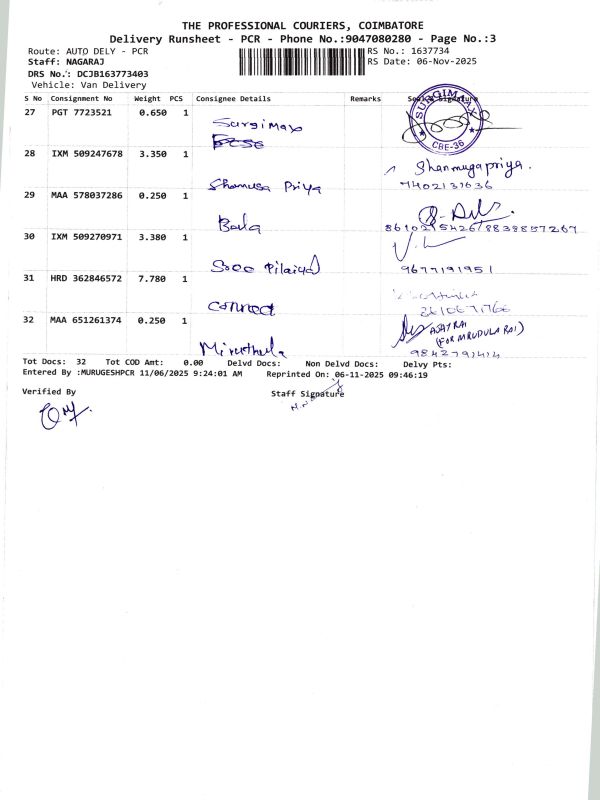 THE PROFESSIONAL COURIERS, COIMBATORE
Delivery Runsheet - PCR - Phone No.:9047080280 - Page No.:3
Route: AUTO DELY - PCR
RS No.: 1637734
Staff: NAGARAJ
RS Date: 06-Nov-2025
DRS No.: DCJB163773403
Vehicle: Van Delivery
S No Consignment No Weight PCS Consignee Details Remarks Signature
27 PGT 7723521 0.650 1
Surgimax
SURGIMAX
CBE-36
28 IXM 509247678 3.350 1
Shanmugapriya.
Priya
7402131036
29 MAA 578037286 0.250 1
Bala
8838857267
30 IXM 509270971 3.380 1
Sree
9677191951
31 HRD 362846572 7.780 1
connect
32 MAA 651261374 0.250 1
AJAY RAJ
(FOR MRUDULA RAJ)
Miruthula
Tot Docs: 32 Tot COD Amt: 0.00 Delvd Docs: Non Delvd Docs: Delvy Pts:
Entered By :MURUGESHPCR 11/06/2025 9:24:01 AM Reprinted On: 06-11-2025 09:46:19
Verified By
Staff Signature